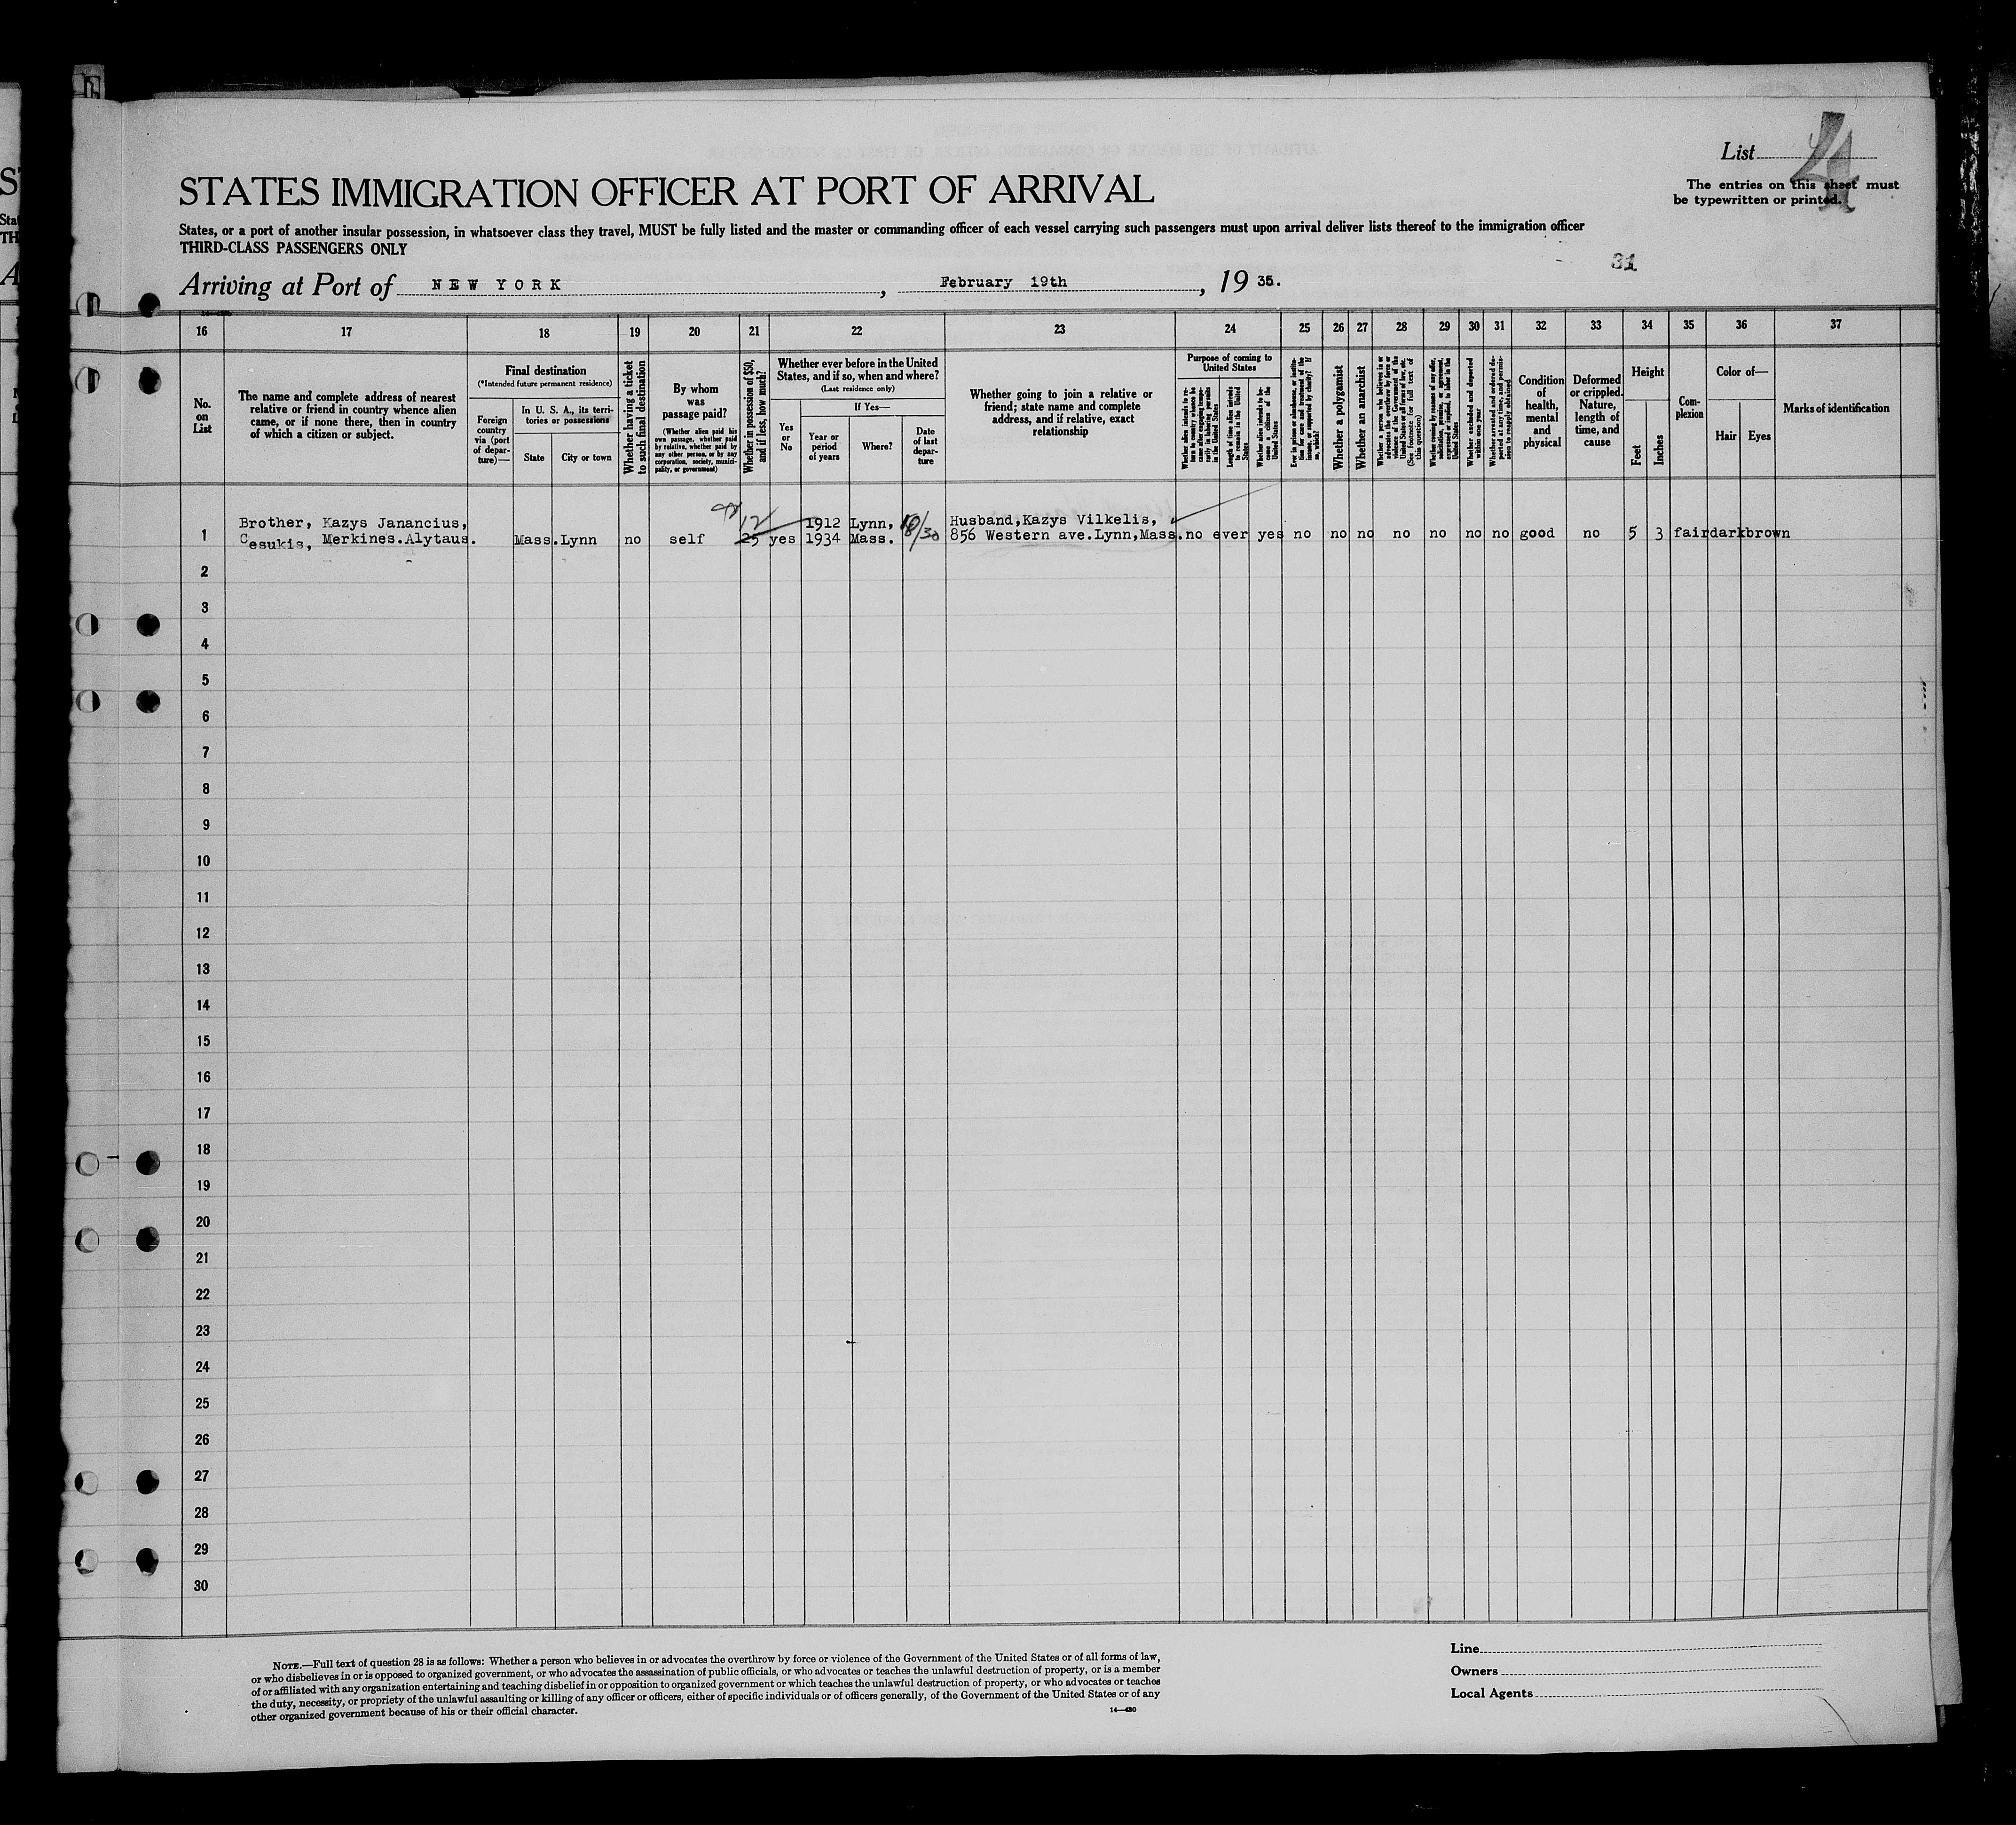 List 4
The entries on this sheet must
be typewritten or printed.
STATES IMMIGRATION OFFICER AT PORT OF ARRIVAL
States, or a port of another insular possession, in whatsoever class they travel, MUST be fully listed and the master or commanding officer of each vessel carrying such passengers must upon arrival deliver lists thereof to the immigration officer
THIRD-CLASS PASSENGERS ONLY
31
Arriving at Port of NEW YORK, February 19th, 19 35.
16 17 18 19 20 21 22 23 24 25 26 27 28 29 30 31 32 33 34 35 36 37
No.
on
List
The name and complete address of nearest
relative or friend in country whence alien
came, or if none there, then in country
of which a citizen or subject.
Final destination
(*Intended future permanent residence)
Foreign
country
via (port
of depar-
ture)—
In U. S. A., its terri-
tories or possessions
State
City or town
Whether having a ticket
to such final destination
By whom
was
passage paid?
(Whether alien paid his
own passage, whether paid
by relative, whether paid by
any other person, or by any
corporation, society, munici-
pality, or government)
Whether in possession of $50,
and if less, how much?
Whether ever before in the United
States, and if so, when and where?
(Last residence only)
Yes
or
No
If Yes—
Year or
period
of years
Where?
Date
of last
depar-
ture
Whether going to join a relative or
friend; state name and complete
address, and if relative, exact
relationship
Purpose of coming to
United States
Whether alien intends to re-
turn to country whence he
came after engaging tempo-
rarily in laboring pursuits
in the United States
Length of time alien intends
to remain in the United
States
Whether alien intends to be-
come a citizen of the
United States
Ever in prison or almshouse, or institu-
tion for care and treatment of the
insane, or supported by charity? If
so, which?
Whether a polygamist
Whether an anarchist
Whether a person who believes in or
advocates the overthrow by force or
violence of the Government of the
United States or all forms of law, etc.
(See footnote for full text of
this question)
Whether coming by reason of any offer,
solicitation, promise, or agreement,
expressed or implied, to labor in the
United States
Whether excluded and deported
within one year
Whether arrested and ordered de-
ported at any time and permis-
sion to reapply obtained
Condition
of
health,
mental
and
physical
Deformed
or crippled.
Nature,
length of
time, and
cause
Height
Feet
Inches
Com-
plexion
Color of—
Hair
Eyes
Marks of identification
12
Brother, Kazys Janancius, 1912 Lynn, 10/30 Husband,Kazys Vilkelis,
1 Cesukis, Merkines.Alytaus. Mass. Lynn no self 25 yes 1934 Mass. 856 Western ave.Lynn,Mass. no ever yes no no no no no no no good no 5 3 fair dark brown
2
3
4
5
6
7
8
9
10
11
12
13
14
15
16
17
18
19
20
21
22
23
24
25
26
27
28
29
30
NOTE.—Full text of question 28 is as follows: Whether a person who believes in or advocates the overthrow by force or violence of the Government of the United States or of all forms of law,
or who disbelieves in or is opposed to organized government, or who advocates the assassination of public officials, or who advocates or teaches the unlawful destruction of property, or is a member
of or affiliated with any organization entertaining and teaching disbelief in or opposition to organized government or which teaches the unlawful destruction of property, or who advocates or teaches
the duty, necessity, or propriety of the unlawful assaulting or killing of any officer or officers, either of specific individuals or of officers generally, of the Government of the United States or of any
other organized government because of his or their official character.
14—430
Line
Owners
Local Agents